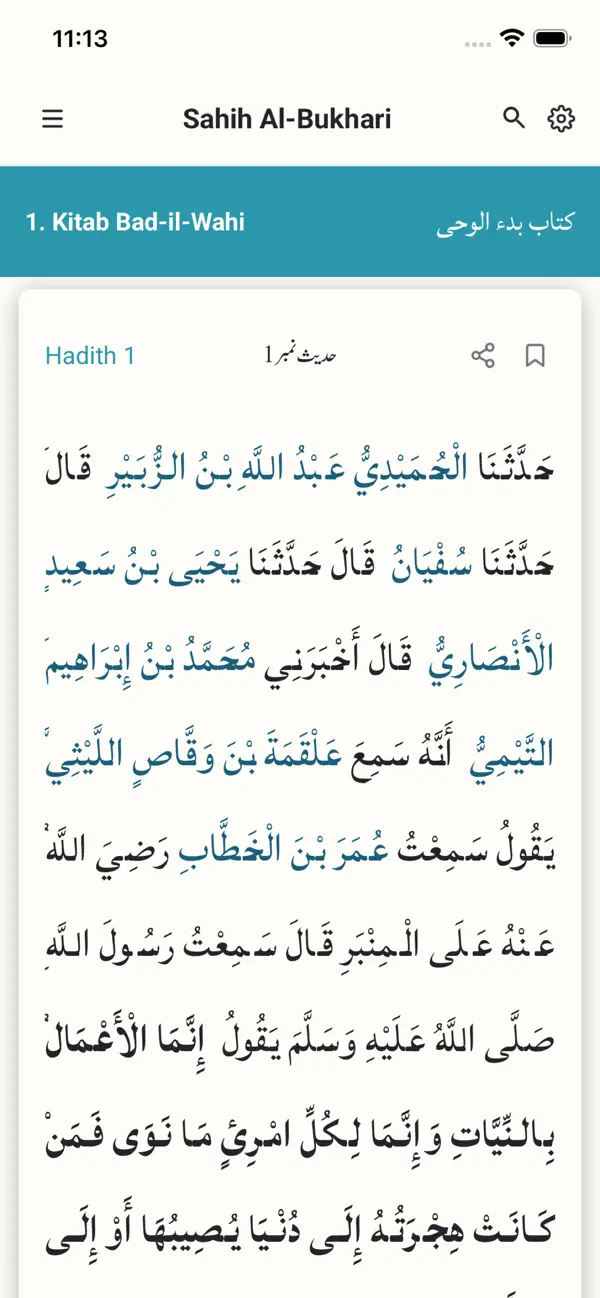 11:13
Sahih Al-Bukhari
1. Kitab Bad-il-Wahi كتاب بدء الوحى
Hadith 1 حدیث نمبر 1
حَدَّثَنَا الْحُمَيْدِيُّ عَبْدُ اللَّهِ بْنُ الزُّبَيْرِ قَالَ
حَدَّثَنَا سُفْيَانُ قَالَ حَدَّثَنَا يَحْيَى بْنُ سَعِيدٍ
الْأَنْصَارِيُّ قَالَ أَخْبَرَنِي مُحَمَّدُ بْنُ إِبْرَاهِيمَ
التَّيْمِيُّ أَنَّهُ سَمِعَ عَلْقَمَةَ بْنَ وَقَّاصٍ اللَّيْثِيَّ
يَقُولُ سَمِعْتُ عُمَرَ بْنَ الْخَطَّابِ رَضِيَ اللَّهُ
عَنْهُ عَلَى الْمِنْبَرِ قَالَ سَمِعْتُ رَسُولَ اللَّهِ
صَلَّى اللَّهُ عَلَيْهِ وَسَلَّمَ يَقُولُ إِنَّمَا الْأَعْمَالُ
بِالنِّيَّاتِ وَإِنَّمَا لِكُلِّ امْرِئٍ مَا نَوَى فَمَنْ
كَانَتْ هِجْرَتُهُ إِلَى دُنْيَا يُصِيبُهَا أَوْ إِلَى